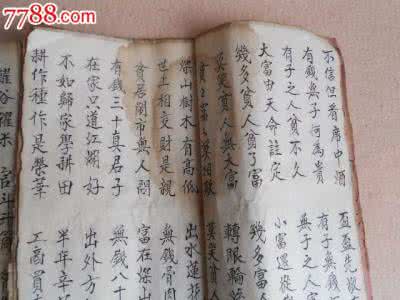 7788.com
不信但看席中酒 盃盃先
有錢無子何為貴 有子無錢
有子之人貧不久 無子之人
大富由天命註定 小富還從
幾多貧人貧了富 幾多富
莫笑貧人無大富 轉眼輪
莫相欺 莫笑貧
深山樹木有高低 出水蓮
世上相交財是親 無錢骨肉
貧居鬧市無人問 富在深山
有錢三十真君子 無錢八十
在家只道江湖好 出外方
不如歸家學耕田 半年辛
耕作種作是榮華 工商買
糴谷糴米